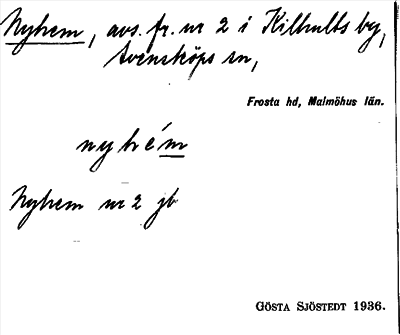 Nyhem, avs. fr. nr 2 i Killhults by,
Svensköps sn,
Frosta hd, Malmöhus län.
nyhém
Nyhem nr 2 jb
GÖSTA SJÖSTEDT 1936.